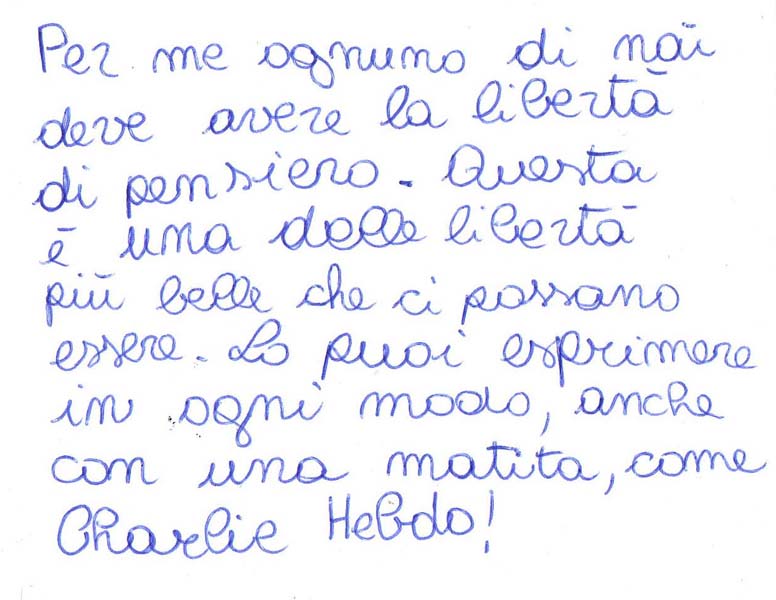 Per me ognuno di noi
deve avere la libertà
di pensiero. Questa
è una delle libertà
più belle che ci possano
essere. Lo puoi esprimere
in ogni modo, anche
con una matita, come
Charlie Hebdo!